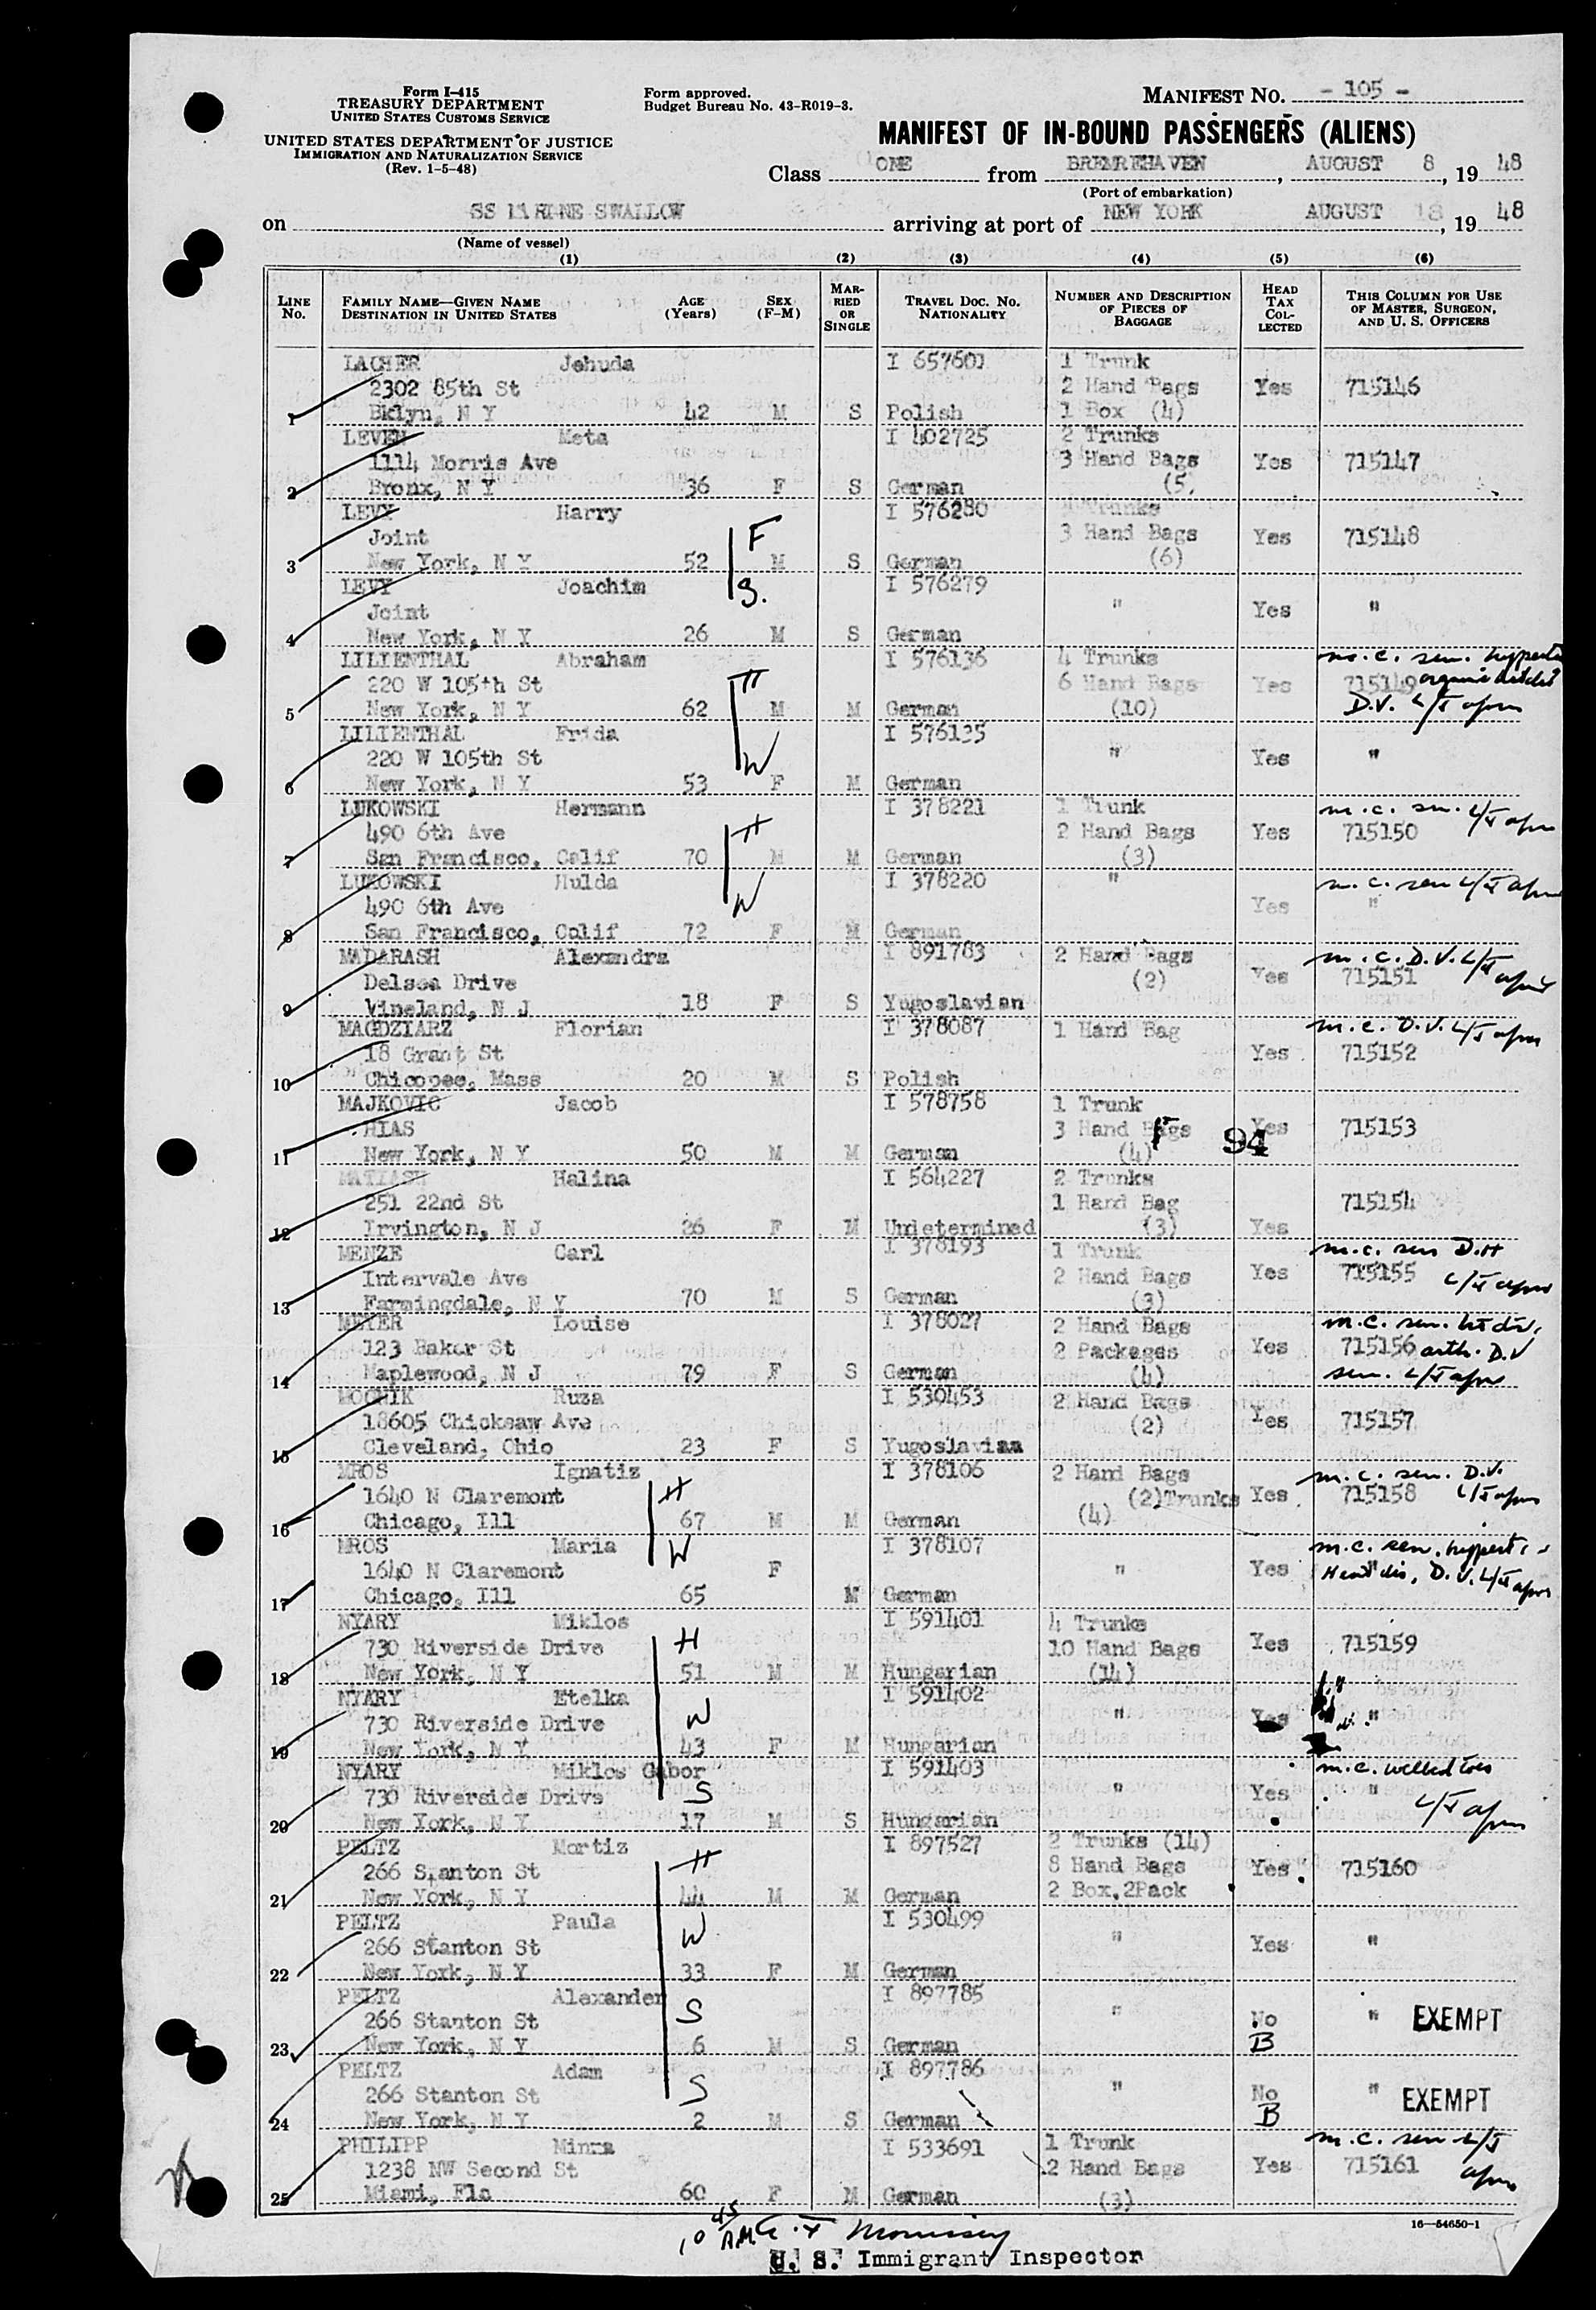 Form I-415
TREASURY DEPARTMENT
UNITED STATES CUSTOMS SERVICE
UNITED STATES DEPARTMENT OF JUSTICE
IMMIGRATION AND NATURALIZATION SERVICE
(Rev. 1-5-48)
Form approved.
Budget Bureau No. 43-R019-3.
MANIFEST NO. - 105 -
MANIFEST OF IN-BOUND PASSENGERS (ALIENS)
Class ONE from BREMREHAVEN, AUGUST 8, 19 48
(Port of embarkation)
on SS MARINE SWALLOW arriving at port of NEW YORK AUGUST 18, 19 48
(Name of vessel)
(1) (2) (3) (4) (5) (6)
LINE No. FAMILY NAME—GIVEN NAME DESTINATION IN UNITED STATES AGE (Years) SEX (F-M) MARRIED OR SINGLE TRAVEL DOC. NO. NATIONALITY NUMBER AND DESCRIPTION OF PIECES OF BAGGAGE HEAD TAX COLLECTED THIS COLUMN FOR USE OF MASTER, SURGEON, AND U. S. OFFICERS
LACHER Jehuda I 657601 1 Trunk
2302 85th St 2 Hand Bags Yes 715146
1 Bklyn, N Y 42 M S Polish 1 Box (4)
LEVEN Meta I 402725 2 Trunks
1114 Morris Ave 3 Hand Bags Yes 715147
2 Bronx, N Y 36 F S German (5)
LEVY Harry I 576280 Trunks
Joint F 3 Hand Bags Yes 715148
3 New York, N Y 52 M S German (6)
LEVY Joachim S. I 576279
Joint " Yes "
4 New York, N Y 26 M S German
LILIENTHAL Abraham I 576136 4 Trunks m.c. sen.
220 W 105th St H 6 Hand Bags Yes 715149
5 New York, N Y 62 M M German (10) D.V.
LILIENTHAL Frida I 576135
220 W 105th St W " Yes "
6 New York, N Y 53 F M German
LUKOWSKI Hermann I 378221 1 Trunk m.c. sen.
490 6th Ave H 2 Hand Bags Yes 715150
7 San Francisco, Calif 70 M M German (3)
LUKOWSKI Hulda I 378220 " m.c. sen
490 6th Ave W Yes "
8 San Francisco, Calif 72 F M German
MADARASH Alexandra I 891783 2 Hand Bags m.c. D.V.
Delsea Drive (2) Yes 715151
9 Vineland, N J 18 F S Yugoslavian
MAGDZIARZ Florian I 378087 1 Hand Bag m.c. D.V.
18 Grant St Yes 715152
10 Chicopee, Mass 20 M S Polish
MAJKOVIC Jacob I 578758 1 Trunk
HIAS 3 Hand Bags 94 Yes 715153
11 New York, N Y 50 M M German (4)
Halina I 564227 2 Trunks
251 22nd St 1 Hand Bag 715154
12 Irvington, N J 26 F M Undetermined (3) Yes
MENZE Carl I 378193 1 Trunk m.c. sen D.H
Intervale Ave 2 Hand Bags Yes 715155
13 Farmingdale, N Y 70 M S German (3)
MEYER Louise I 378027 2 Hand Bags m.c. sen.
123 Baker St 2 Packages Yes 715156 arth. D.V
14 Maplewood, N J 79 F S German (4) sen.
MOCNIK Ruza I 530453 2 Hand Bags
18605 Chicksaw Ave (2) Yes 715157
15 Cleveland, Ohio 23 F S Yugoslavian
MROS Ignatiz I 378106 2 Hand Bags m.c. sen. D.V.
1640 N Claremont H (2) Trunks Yes 715158
16 Chicago, Ill 67 M M German (4)
MROS Maria W I 378107 m.c. sen. hypert.
1640 N Claremont F " Yes " Heart dis, D.V.
17 Chicago, Ill 65 M German
NYARY Miklos I 591401 4 Trunks
730 Riverside Drive H 10 Hand Bags Yes 715159
18 New York, N Y 51 M M Hungarian (14)
NYARY Etelka I 591402
730 Riverside Drive W " Yes "
19 New York, N Y 43 F M Hungarian
NYARY Miklos Gabor I 591403 m.c. webbed toes
730 Riverside Drive S " Yes "
20 New York, N Y 17 M S Hungarian
PELTZ Mortiz I 897527 2 Trunks (14)
266 Stanton St H 8 Hand Bags Yes 715160
21 New York, N Y 44 M M German 2 Box, 2Pack
PELTZ Paula I 530499
266 Stanton St W " Yes "
22 New York, N Y 33 F M German
PELTZ Alexander I 897785
266 Stanton St S " No " EXEMPT
23 New York, N Y 6 M S German B
PELTZ Adam I 897786
266 Stanton St S " No " EXEMPT
24 New York, N Y 2 M S German B
PHILIPP Minna I 533691 1 Trunk m.c. sen
1238 NW Second St 2 Hand Bags Yes 715161
25 Miami, Fla 60 F M German (3)
16—54650-1
10 45 A.M. Morrissey
U. S. Immigrant Inspector